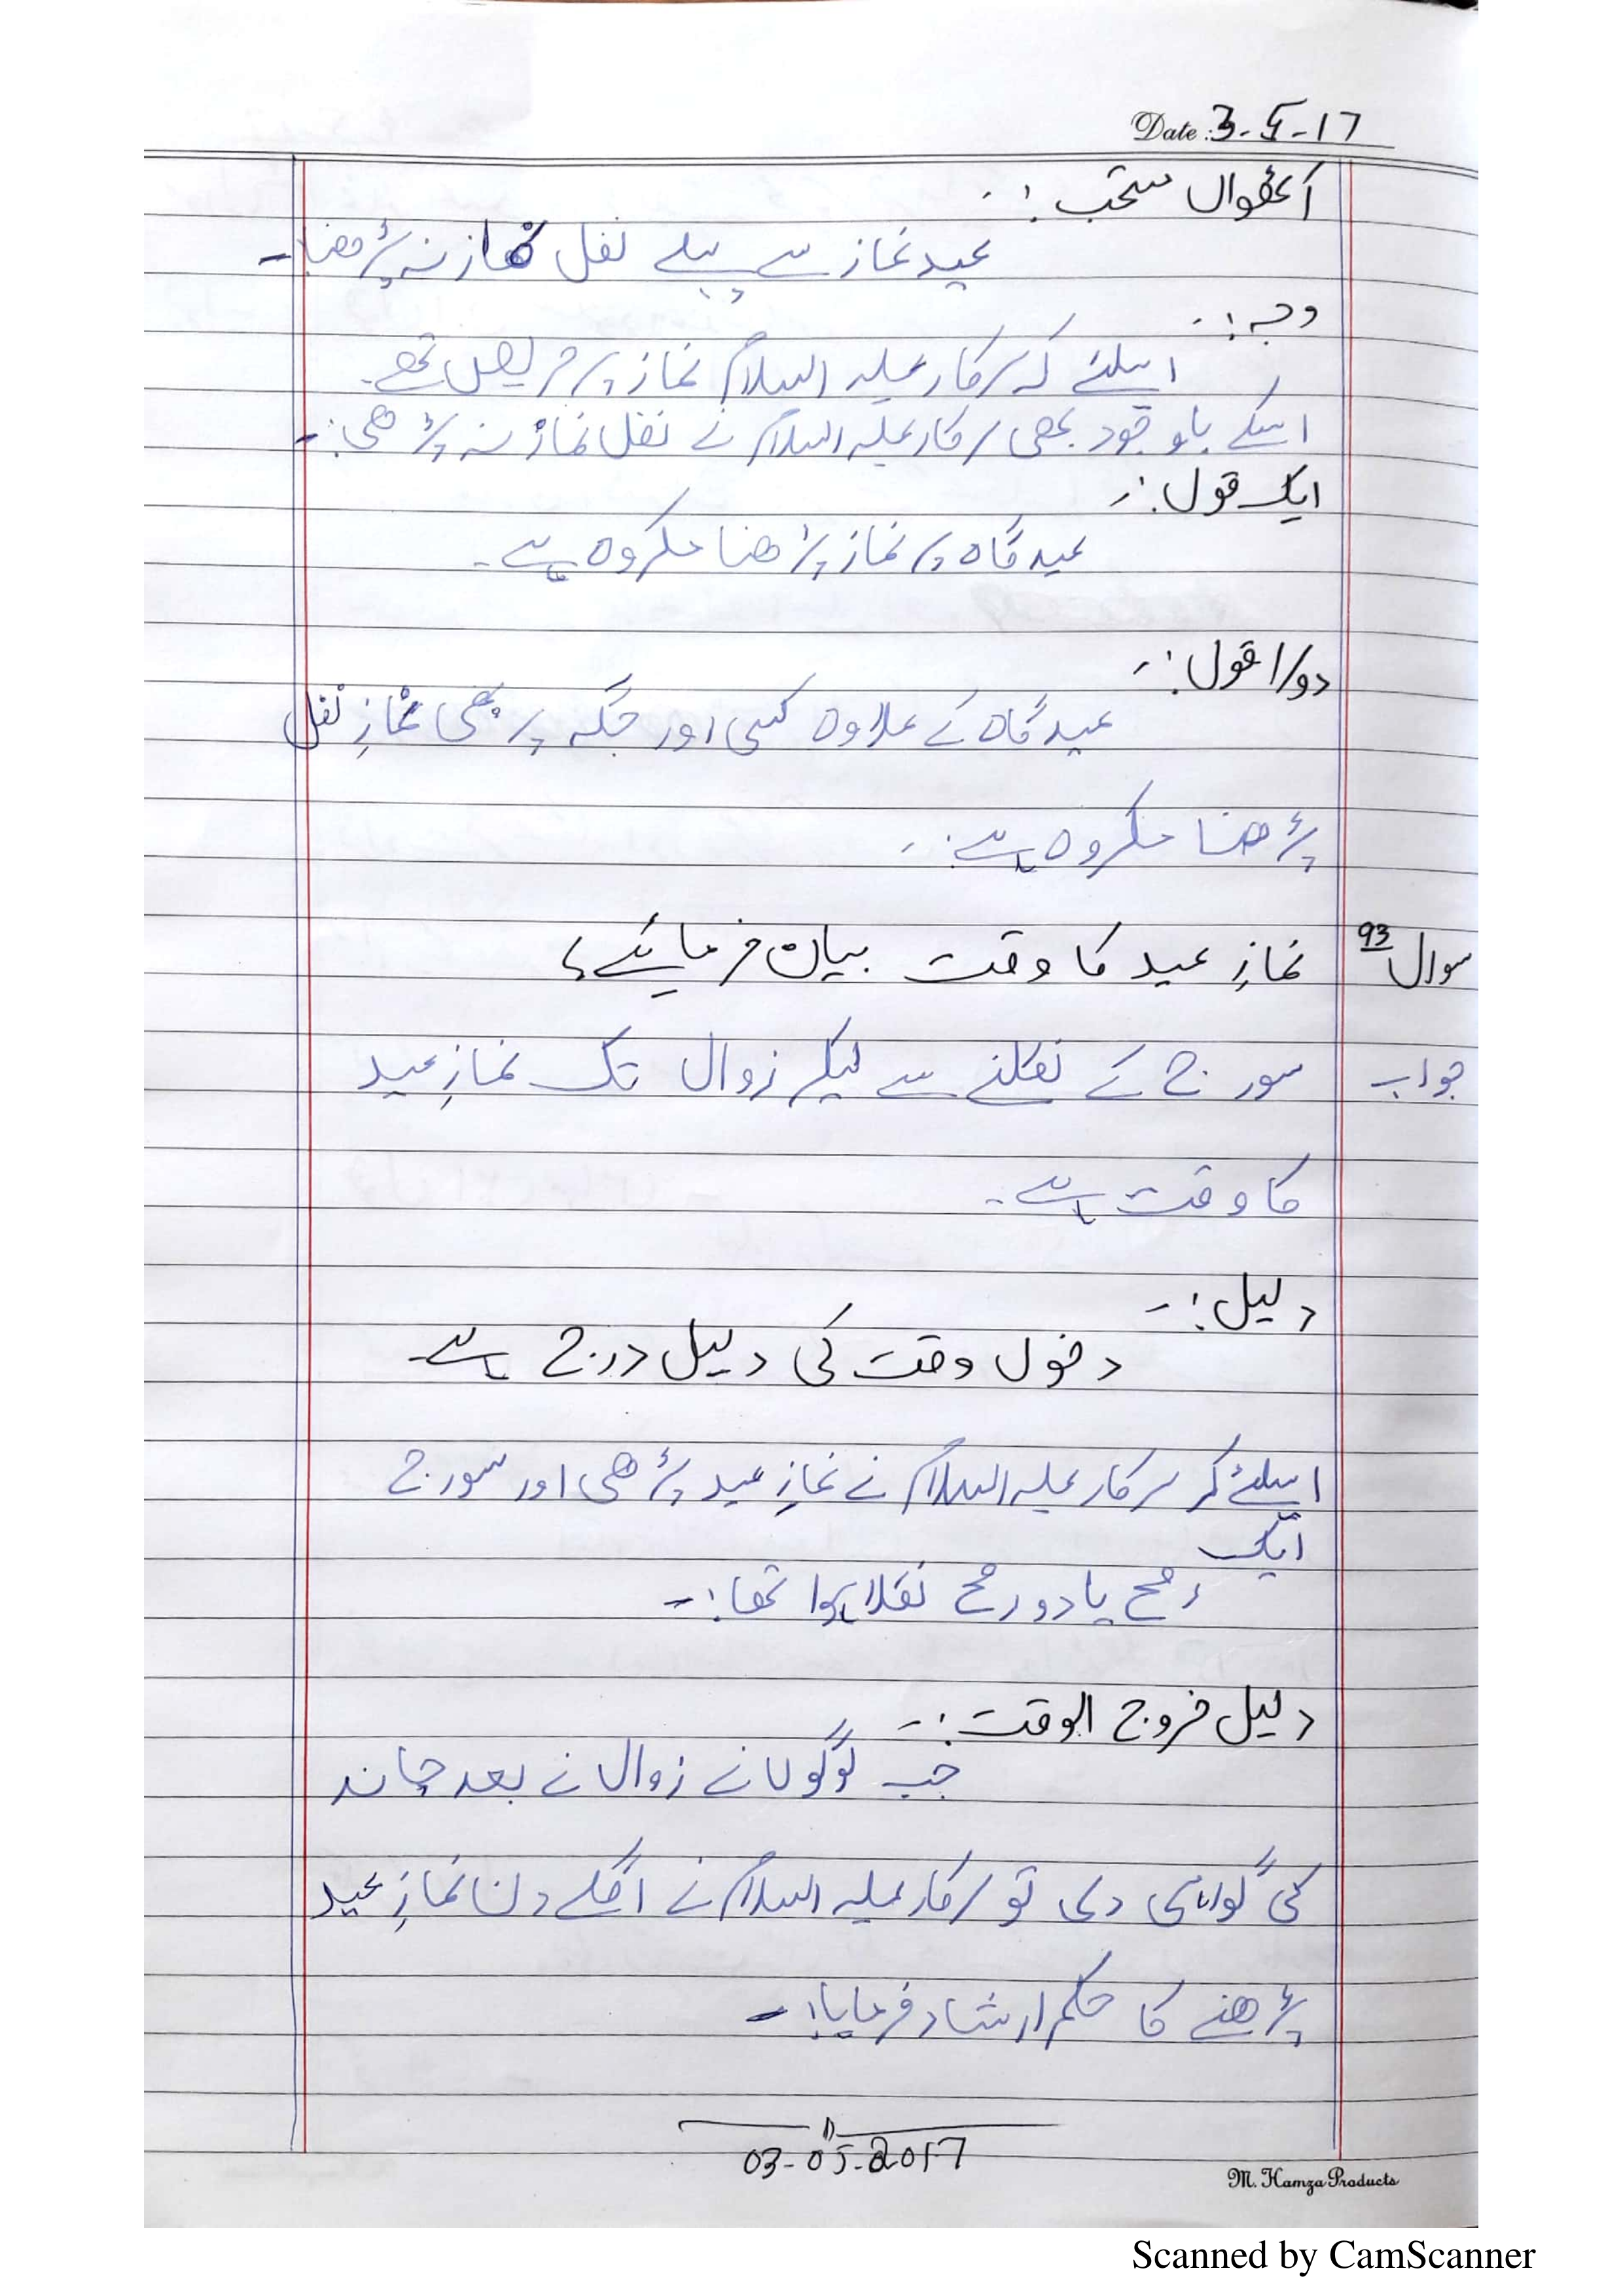 Date : 3-5-17
آٹھواں مستحب :-
عید نماز سے پہلے نفل نماز نہ پڑھنا-
وجہ :-
اسلئے کہ سرکار علیہ السلام نماز پر حریص تھے۔
اسکے باوجود بھی سرکار علیہ السلام نے نفل نماز نہ پڑھی:-
ایک قول :-
عید گاہ پر نماز پڑھنا مکروہ ہے۔
دوسرا قول :-
عید گاہ کے علاوہ کسی اور جگہ پر بھی نمازِ نفل
پڑھنا مکروہ ہے :-
سوال 93 نمازِ عید کا وقت بیان فرمائیے؟
جواب سورج کے نکلنے سے لیکر زوال تک نمازِ عید
کا وقت ہے۔
دلیل :-
دخول وقت کی دلیل درج ہے
اسلئے کہ سرکار علیہ السلام نے نمازِ عید پڑھی اور سورج
ایک
رمح یا دو رمح نکلا ہوا تھا :-
دلیل خروج الوقت :-
جب لوگوں نے زوال کے بعد چاند
کی گواہی دی تو سرکار علیہ السلام نے اگلے دن نمازِ عید
پڑھنے کا حکم ارشاد فرمایا :-
03-05-2017
M. Hamza Products
Scanned by CamScanner